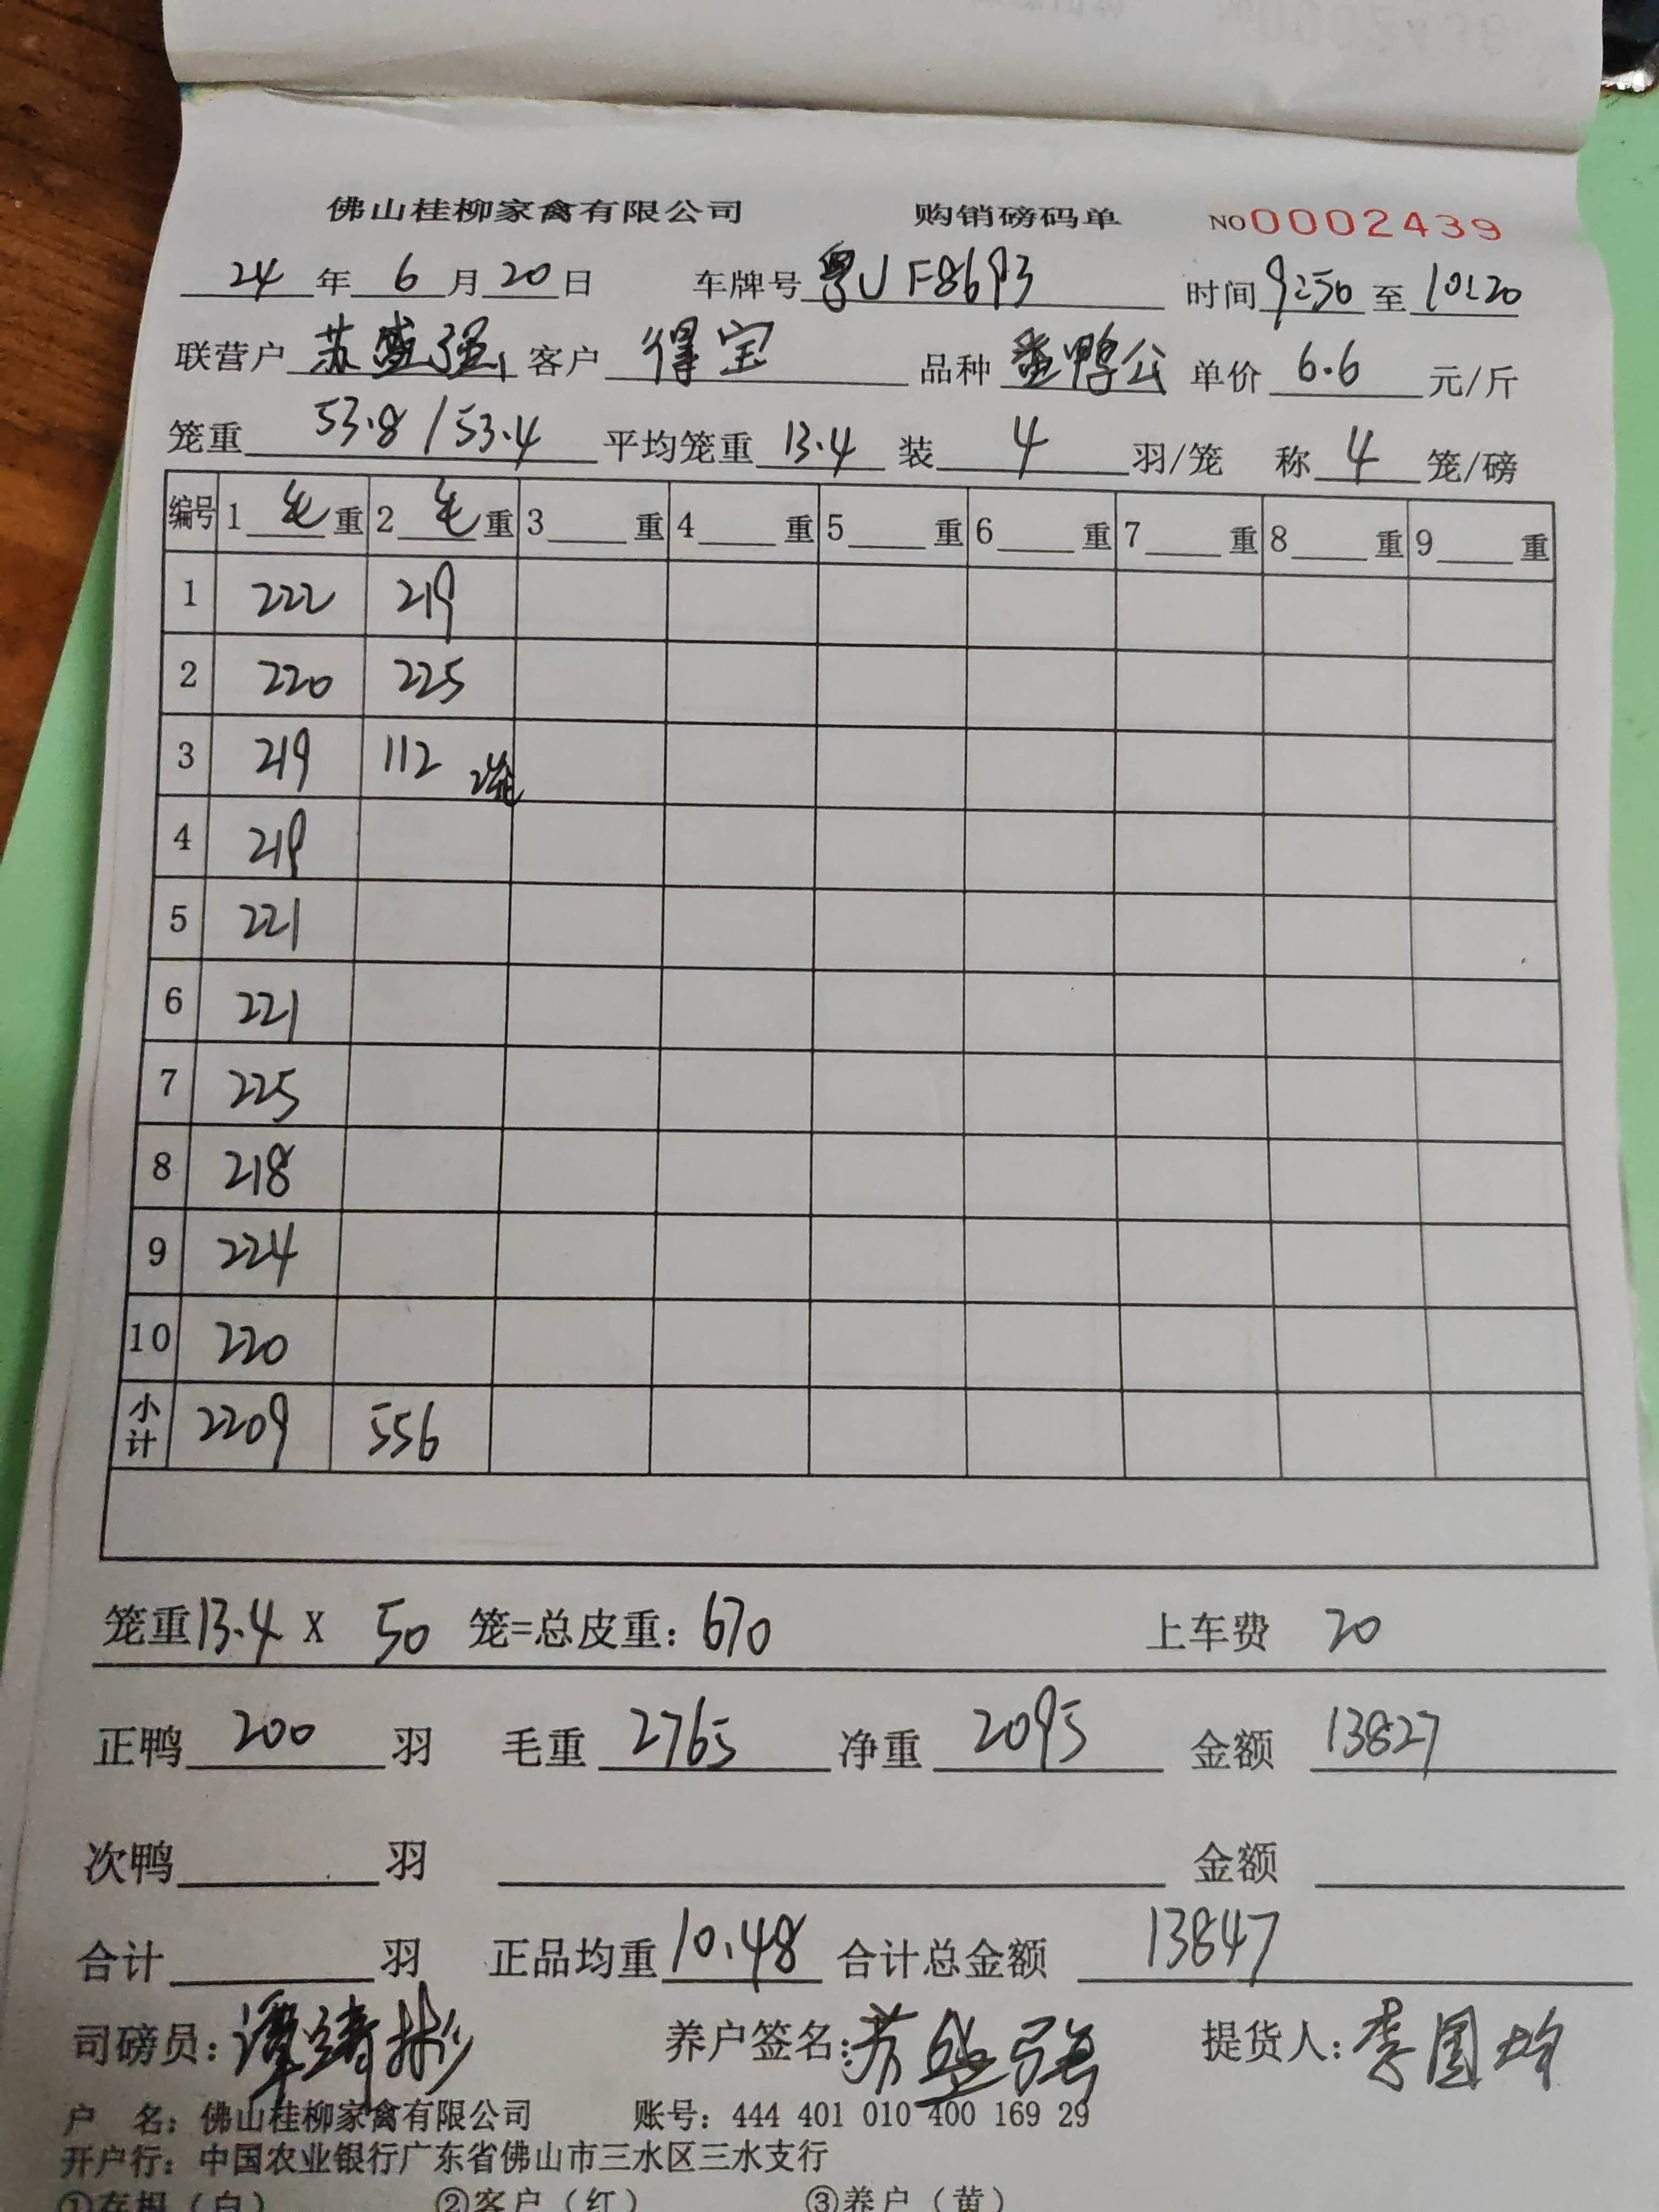 佛山桂柳家禽有限公司 购销磅码单 NO0002439
24年6月20日 车牌号粤UF8693 时间9:50至10:20
联营户苏盛强 客户得宝 品种番鸭公 单价6.6元/斤
笼重53.8/53.4 平均笼重13.4 装4羽/笼 称4笼/磅
编号 1毛重 2毛重 3重 4重 5重 6重 7重 8重 9重
1 222 219
2 220 225
3 219 112 2笼
4 219
5 221
6 221
7 225
8 218
9 224
10 220
小计 2209 556
笼重13.4X 50笼=总皮重:670 上车费 20
正鸭200羽 毛重2765 净重2095 金额13827
次鸭羽 金额
合计羽 正品均重10.48 合计总金额13847
司磅员:谭绮彬 养户签名:苏盛强 提货人:李国
户 名:佛山桂柳家禽有限公司 账号:444 401 010 400 169 29
开户行:中国农业银行广东省佛山市三水区三水支行
①存根(白) ②客户(红) ③养户(黄)